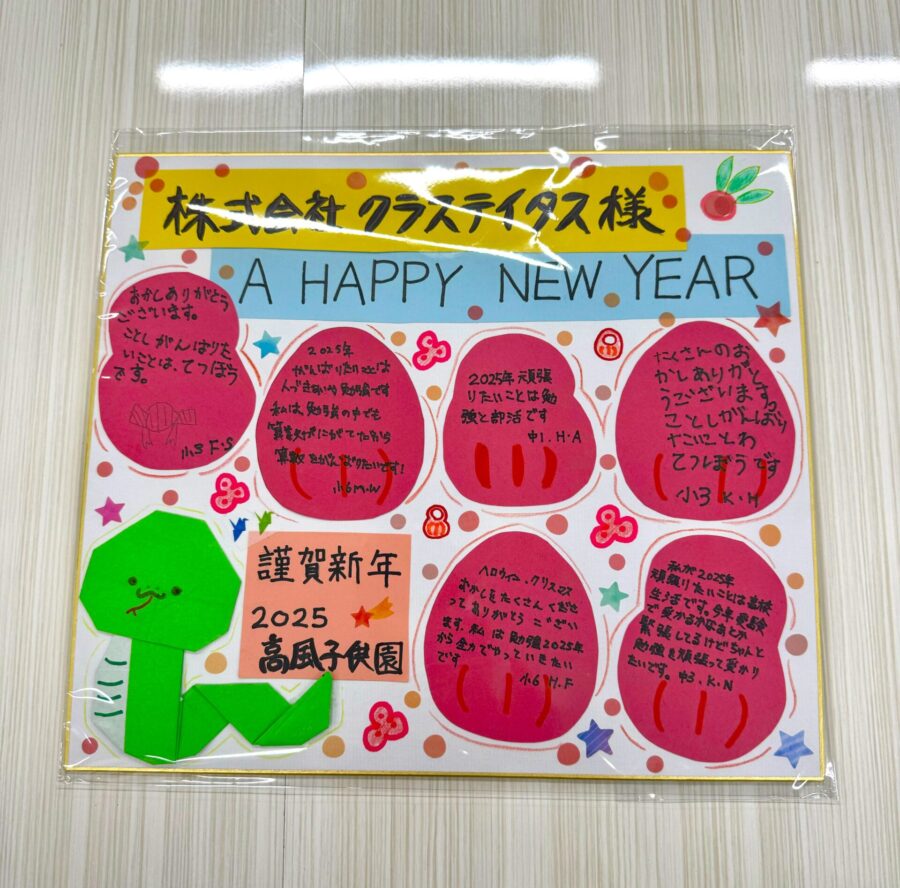 株式会社 クラステイタス様
A HAPPY NEW YEAR
おかしありがとう
ございます。
ことしがんばりた
いことは、てつぼう
です。
小3 F・S
2025年
がんばりたいことは
勉強です
私は、勉強の中でも
算数がにがてだから
算数をがんばりたいです!
小6 M.W
2025年頑張
りたいことは勉
強と部活です
中1.H・A
たくさんのお
かしありがと
うございます。
ことしがんばり
たいことわ
てつぼうです
小3 K・H
謹賀新年
2025
高風子供園
ハロウィン、クリスマス
おかしをたくさんくださ
ってありがとうござい
ます。私は勉強2025年
から全力でやっていきたい
です
小6 H.F
私が2025年
頑張りたいことは高校
生活です。今年受験
で受かるかなあとか
緊張してるけどちゃんと
勉強を頑張って受かり
たいです。中3.K.N